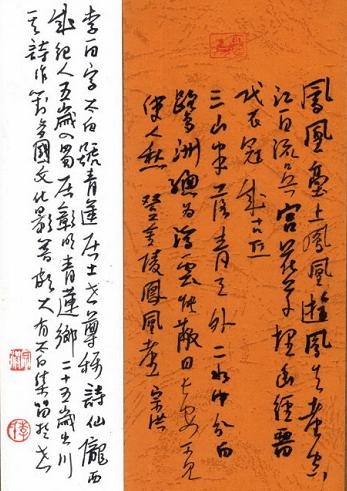 鳳凰臺上鳳凰遊鳳去臺空
江自流吳宮花草埋幽徑晉
代衣冠成古丘
三山半落青天外二水中分白
鷺洲總為浮雲能蔽日長安不見
使人愁 登金陵鳳凰臺 宗洪
李白字太白號青蓮居士世尊稱詩仙隴西
成紀人五歲入蜀居彰明青蓮鄉二十五歲出川
其詩作對吾國文化影響頗大有太白集留於世